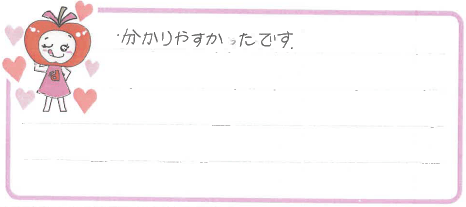 ・分かりやすかったです.